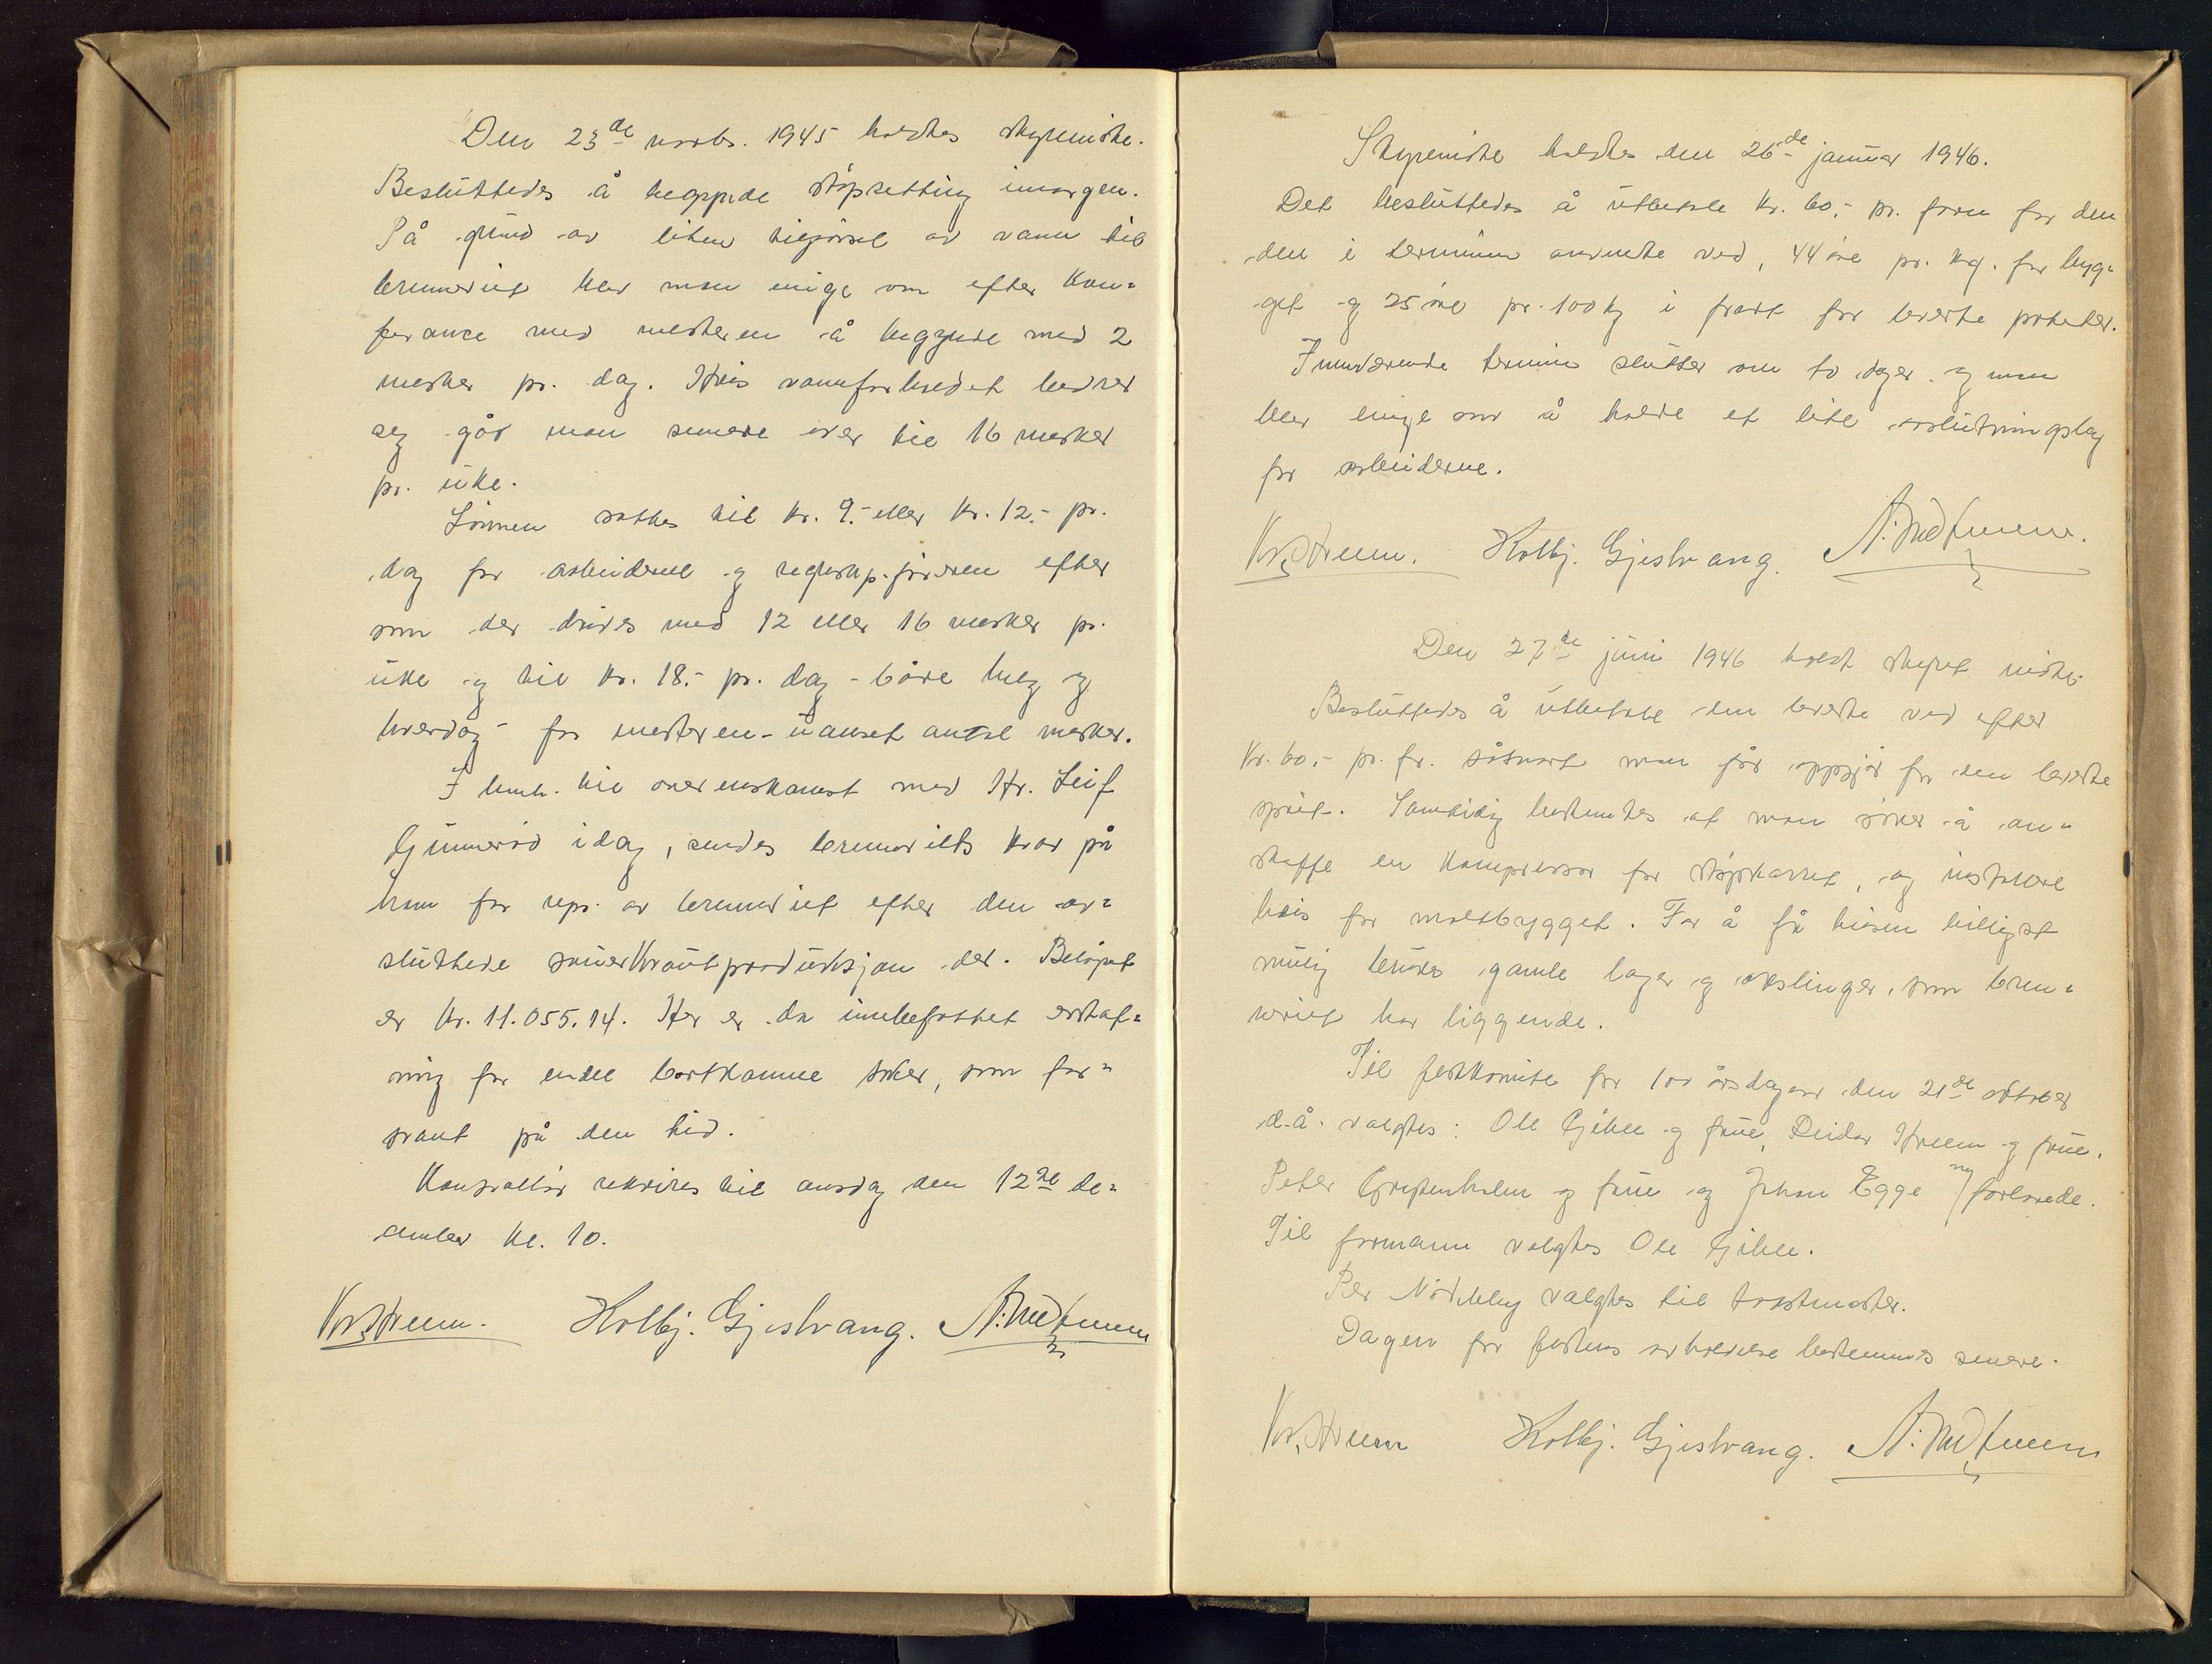 Den 23de novbr. 1945 holdtes styremöte.
Besluttedes å begynde stöpsetting imorgen.
På grund av liten tilförsel av vann til
brenneriet blev man enige om efter kon-
feranse med mesteren å begynde med 2
mesker pr. dag. Hvis vannforholdet bedrer
seg går man senere over til 16 mesker
pr. uke.
Lönnen sattes til kr. 9.- eller kr. 12.- pr.
dag for arbeiderne og regnskp.föreren efter
som der drives med 12 eller 16 mesker pr.
uke og til kr. 18.- pr. dag - både helg og
hverdag - for mesteren - uanset antal mesker.
I henh. til overenskomst med Hr. Leif
Gunneröd idag, sendes brenneriets krav på
ham for rep. av brenneriet efter den av-
sluttede sauerkrautproduksjon der. Belöpet
er kr. 11.055.14. Her er da innbefattet erstat-
ning for endel bortkomne saker, som for-
svant på den tid.
Konsvallör rekvireres til onsdag den 12te de-
cember kl. 10.
Kr. Hveem. Kolbj. Gjestvang.
Styremöte holdtes den 26de januar 1946.
Det besluttedes å utbetale kr. 60.- pr. favn for den
den i terminen anvendte ved, 44 öre pr. kg. for byg-
get og 25 öre pr. 100 kg i frakt for leverte poteter.
Innværende termin slutter om to dager og man
blev enige om å holde et lite avslutningslag
for arbeiderne.
Kr. Hveem. Kolbj. Gjestvang.
Den 27de juni 1946 holdt styret möte.
Besluttedes å utbetale den leverte ved efter
kr. 60.- pr. fv. såsnart man får oppgjör for den leverte
sprit. Samtidig bestemtes at man söker å an-
skaffe en kompressor for stöpkarret, og installere
heis for maltbygget. For å få heisen billigst
mulig brukes gamle lager og akslinger, som bren-
neriet har liggende.
Til festkomite for 100 årsdagen den 21de oktober
d.å. valgtes: Ole Gjihle og frue, Reidar Hveem og frue,
Peter Grytenholm og frue og Johan Egge og forlovede.
Til formann valgtes Ole Gjihle.
Per Nordleby valgtes til toastmaster.
Dagen for festens avholdelse bestemmes senere.
Kr. Hveem Kolbj. Gjestvang.